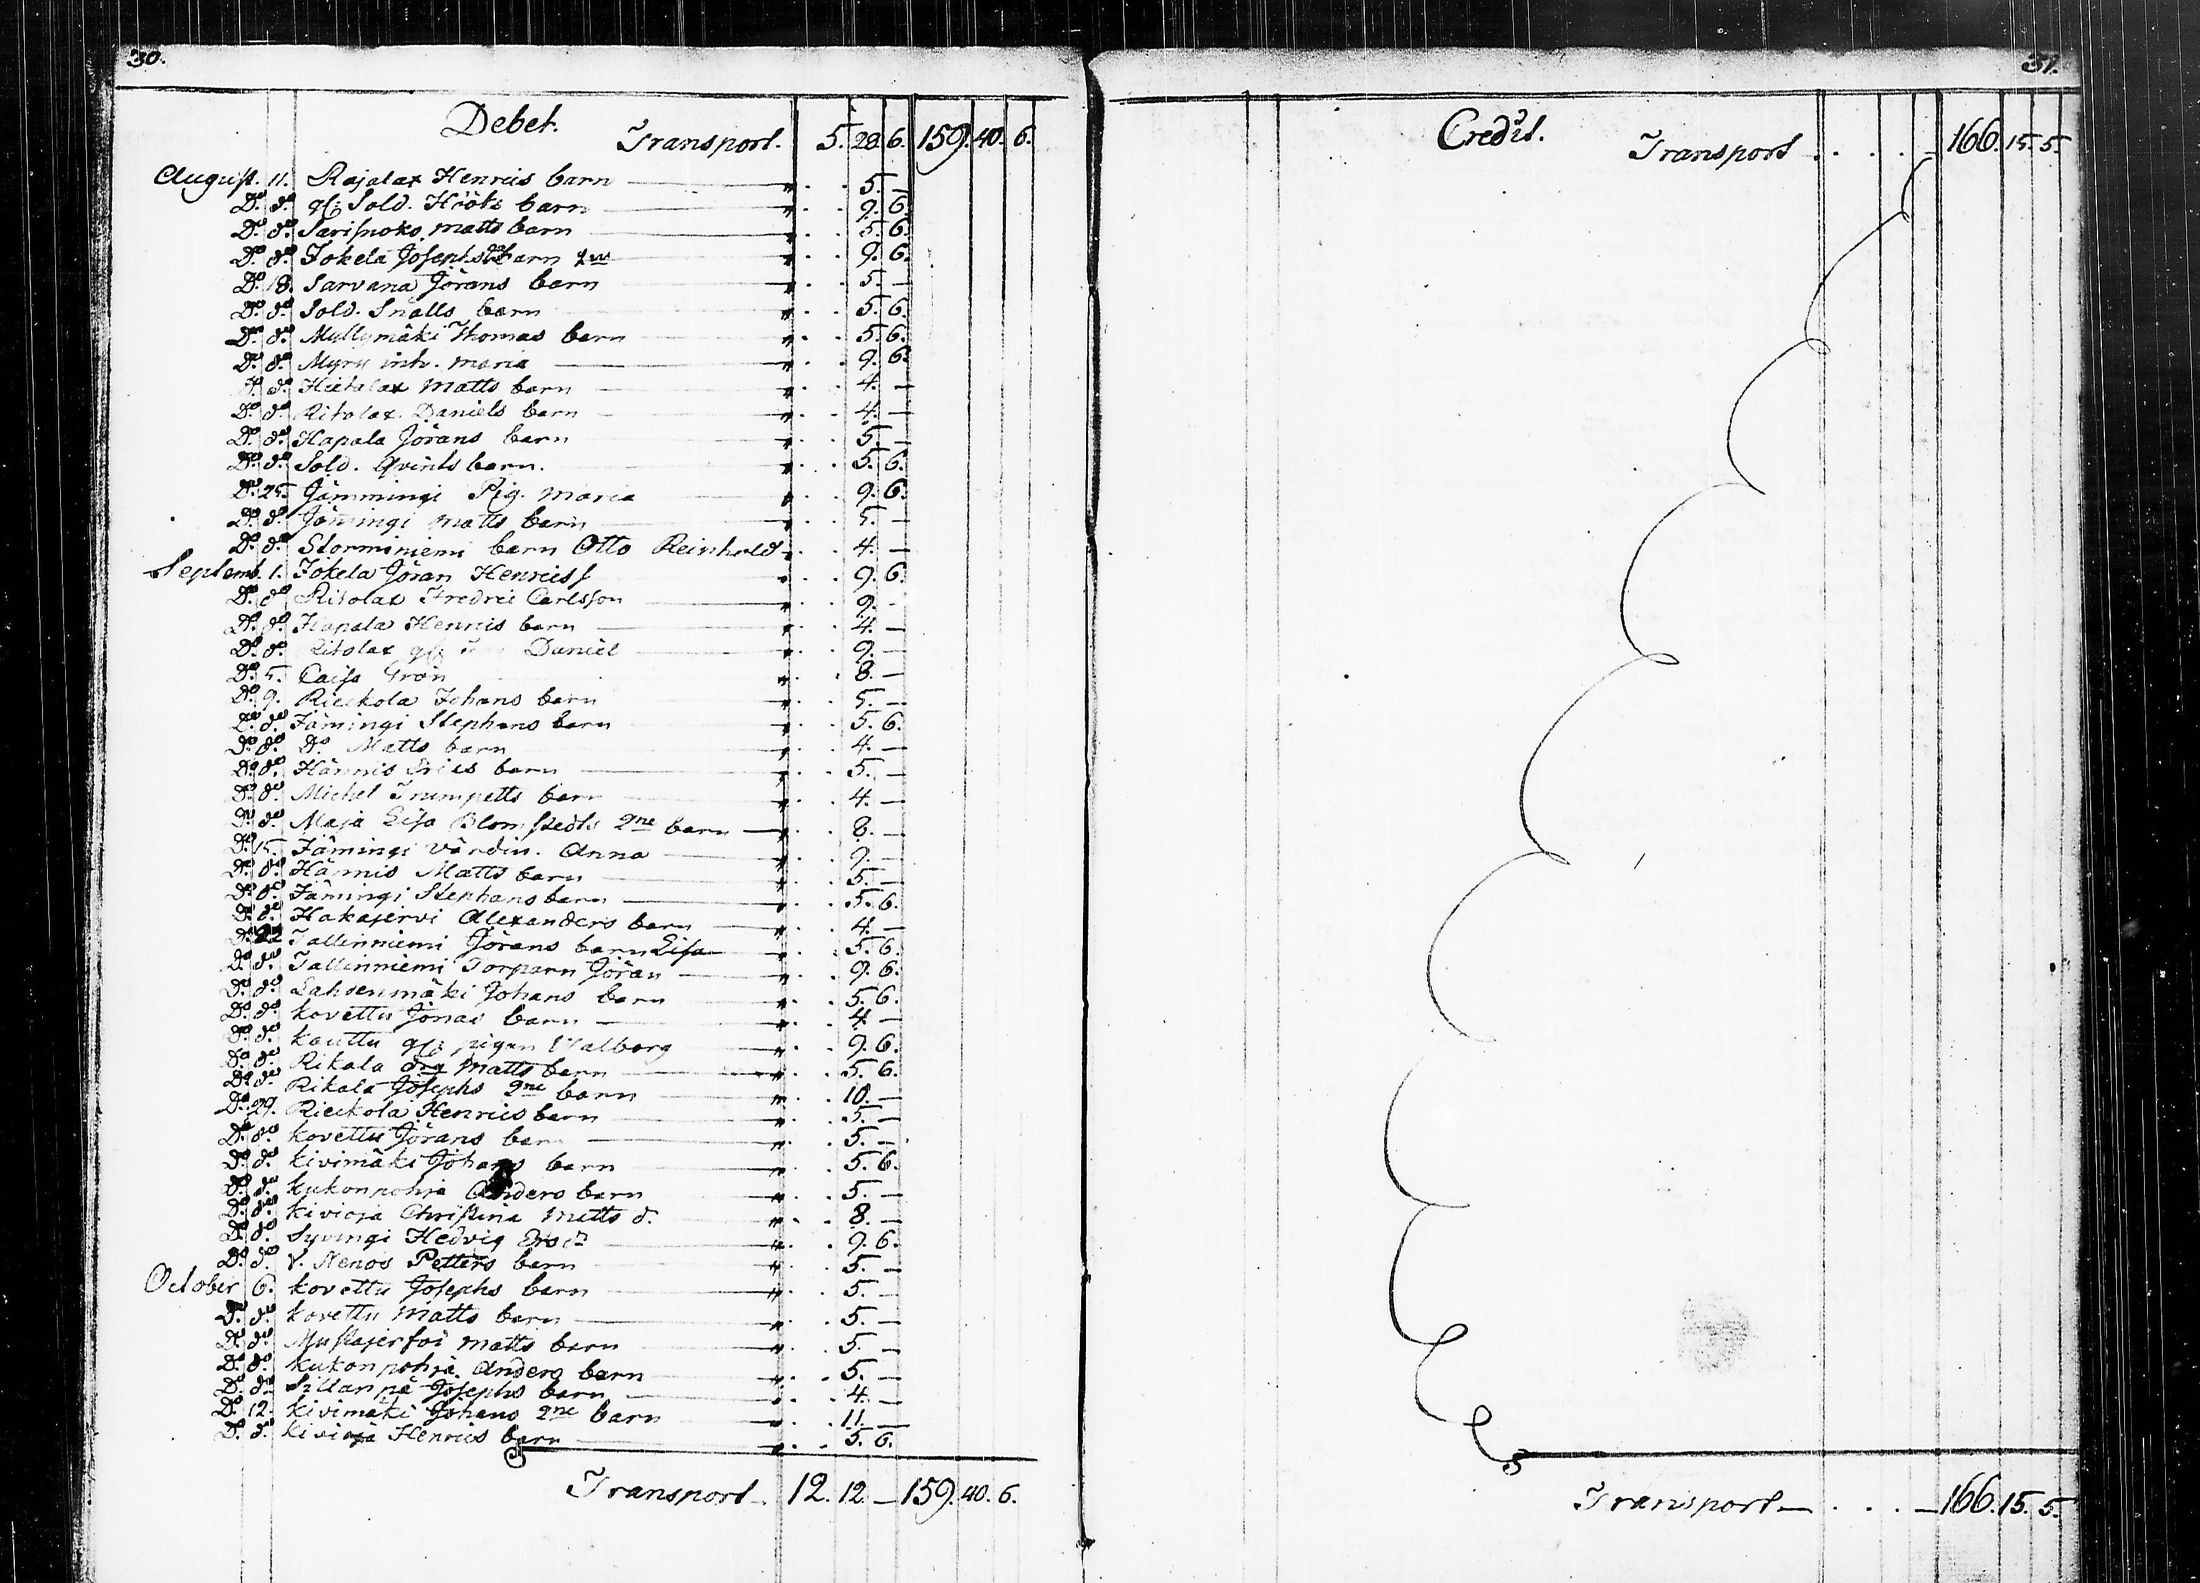 30.
Debet.
Transport. 5. 28. 6. 159. 40. 6.
August. 11. Rajalax Henrics barn " 5. —
Do. do. Sold. Hööks barn " 9. 6.
Do. do. matts barn " 5. 6.
Do. do. Jokela Josephs barn " 9. 6.
Do. 18. Sarvana Jörans barn " 5. —
Do. do. Sold. Snälls barn " 5. 6.
Do. do. Mullymäki Thomas barn " 5. 6.
Do. do. Myry inh. maria " 9. 6.
Do. do. Hietalax Matts barn " 4. —
Do. do. Ritolax Daniels barn " 4. —
Do. do. Hapala Jörans barn " 5. —
Do. do. Sold. Qvints barn. " 5. 6.
Do. 25. Jämmingi Pig. Maria " 9. 6.
Do. do. Jämingi matts barn " 5. —
Do. do. Storminiemi barn Otto Reinhold " 4. —
Septemb. 1. Jokela Jöran Henricss " 9. 6.
Do. do. Ritolax Fredric Carlsson " 9. -
Do. do. Hapala Henrics barn " 4. —
Do. do. Ritolax Daniel " 9. —
Do. 5. Caisa Grön " 8. —
Do. 9. Rieckola Johans barn " 5. —
Do. do. Jämingi Stephans barn " 5. 6.
Do. do. Do Matts barn " 4. —
Do. do. Hännis Erics barn " 5. —
Do. do. Michel Trumpetts barn " 4. —
Do. do. Maja Lisa Blomstedts 2ne barn " 8. —
Do. 15. Jämingi värdin. Anna " 9. —
Do. do. Hännis Matts barn " 5. —
Do. do. Jämingi Stephans barn " 5. 6.
Do. do. Hakajervi Alexanders barn " 4. —
Do. 22 Tallinniemi Jörans barn Lisa " 5. 6.
Do. do. Tallinniemi Torparn Jöran " 9. 6.
Do. do. Lahdenmäki Johans barn " 5. 6.
Do. do. kovettu Jonas barn " 4 —
Do. do. kouttu pigan Walborg " 9. 6.
Do. do. Rikala Matts barn " 5. 6.
Do. do. Rikala Josephs 2ne barn " 10. —
Do. 29. Rieckola Henrics barn " 5. —
Do. do. kovettu Jörans barn " 5. —
Do. do. kivimäki Johans barn " 5. 6.
Do. do. kukonpohja Anders barn " 5. —
Do. do. kivioja Christina Matts d. " 8. —
Do. do. Syvingi Hedvig " 9. 6.
Do. do. V. Nenos Petters barn " 5. —
October 6. kovettu Josephs barn " 5. —
Do. do. kovettu Matts barn " 5. —
Do. do. matts barn " 5. —
Do. do. kukonpohja Anders barn " 5. —
Do. do. Sillanpä Josephs barn " 4. —
Do. 12. kivimäki Johans 2ne barn " 11. —
Do. do. kivioja Henrics barn " 5. 6.
Transport. 12. 12. — 159. 40. 6.
31.
Credit.
Transport . . . . 166. 15. 5.
Transport — . . . — 166. 15. 5.